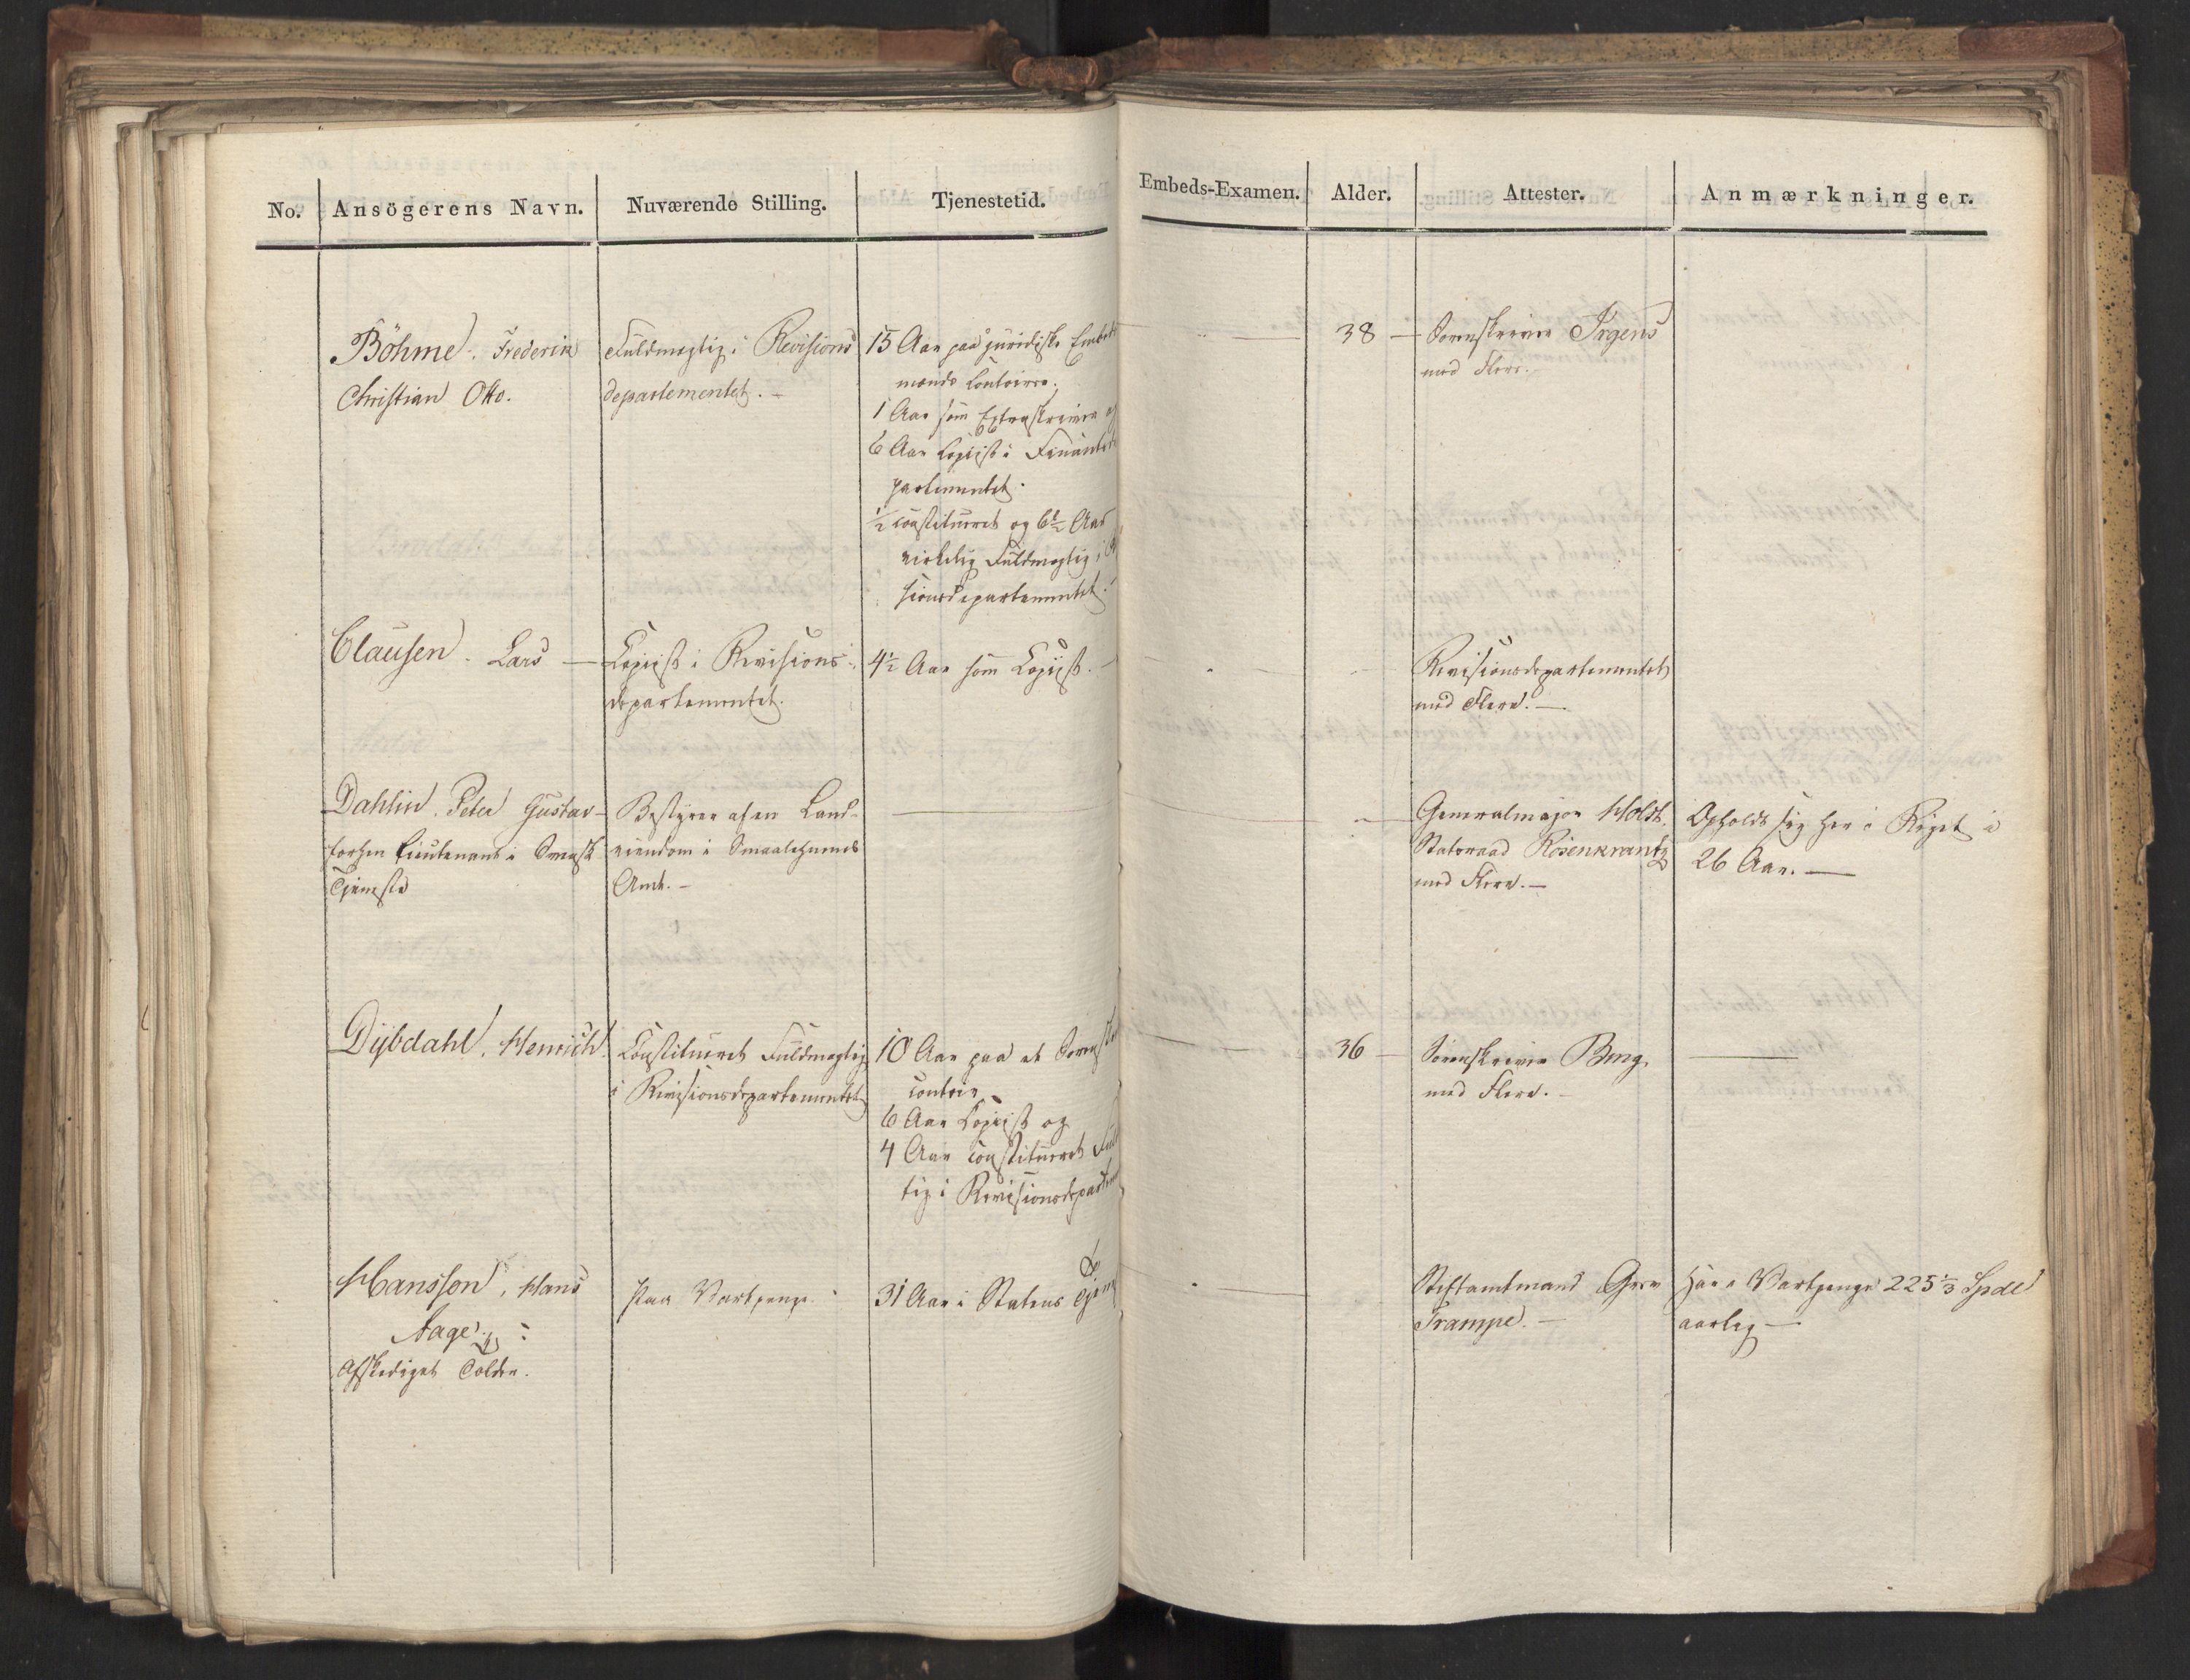 No. Ansögerens Navn. Nuværende Stilling. Tjenestetid. Embeds-Examen. Alder. Attester. Anmærkninger.
Böhme, Frederik
Christian Otto.
Fuldmægtig i Revisions
departementet.
15 Aar paa juridiske Embeds
mænds Contoirer.
1 Aar som Extraskriver og
6 Aar Copiist i Finantsde
partementet.
½ constitueret og 6½ Aar
virkelig Fuldmægtig i
sionsdepartementet.
38
Sorenskriver Irgens
med Flere.
Clausen. Lars
Copiist i Revisions-
departementet.
4½ Aar som Copiist.
Revisionsdepartementet
med Flere.
Dahlin. Peter Gustav
forhen Lieutenant i Svensk
Tjeneste
Bestyrer af en Land-
eiendom i Smaalehnenes
Amt.
Generalmajor Holst,
Statsraad Rosenkrantz
med Flere.
Opholdt sig her i Riget i
26 Aar.
Dybdahl, Henrich
Constitueret Fuldmægtig
i Revisionsdepartementet
10 Aar paa et Sorenskr
contoir
6 Aar Copiist og
4 Aar constitueret Fuld
tig i Revisionsdepartem
36
Sorenskriver Berg
med Flere.
Hansson, Hans
Aage
Afskediget Tolder.
paa Vartpenge
31 Aar i Statens Tjen
Stiftamtmand Grev
Trampe.
Har i Vartpenge 225 ⅓ Spdlr
aarlig